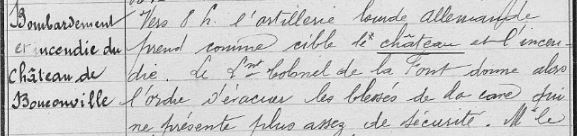 Bombardement
et incendie du
Château de
Bouconville
Vers 8 h. l'artillerie lourde allemande
prend comme cible le château et l'incen-
die. Le Lnt Colonel de la Font donne alors
l'ordre d'évacuer les blessés de la cave qui
ne présente plus assez de sécurité. Mr le